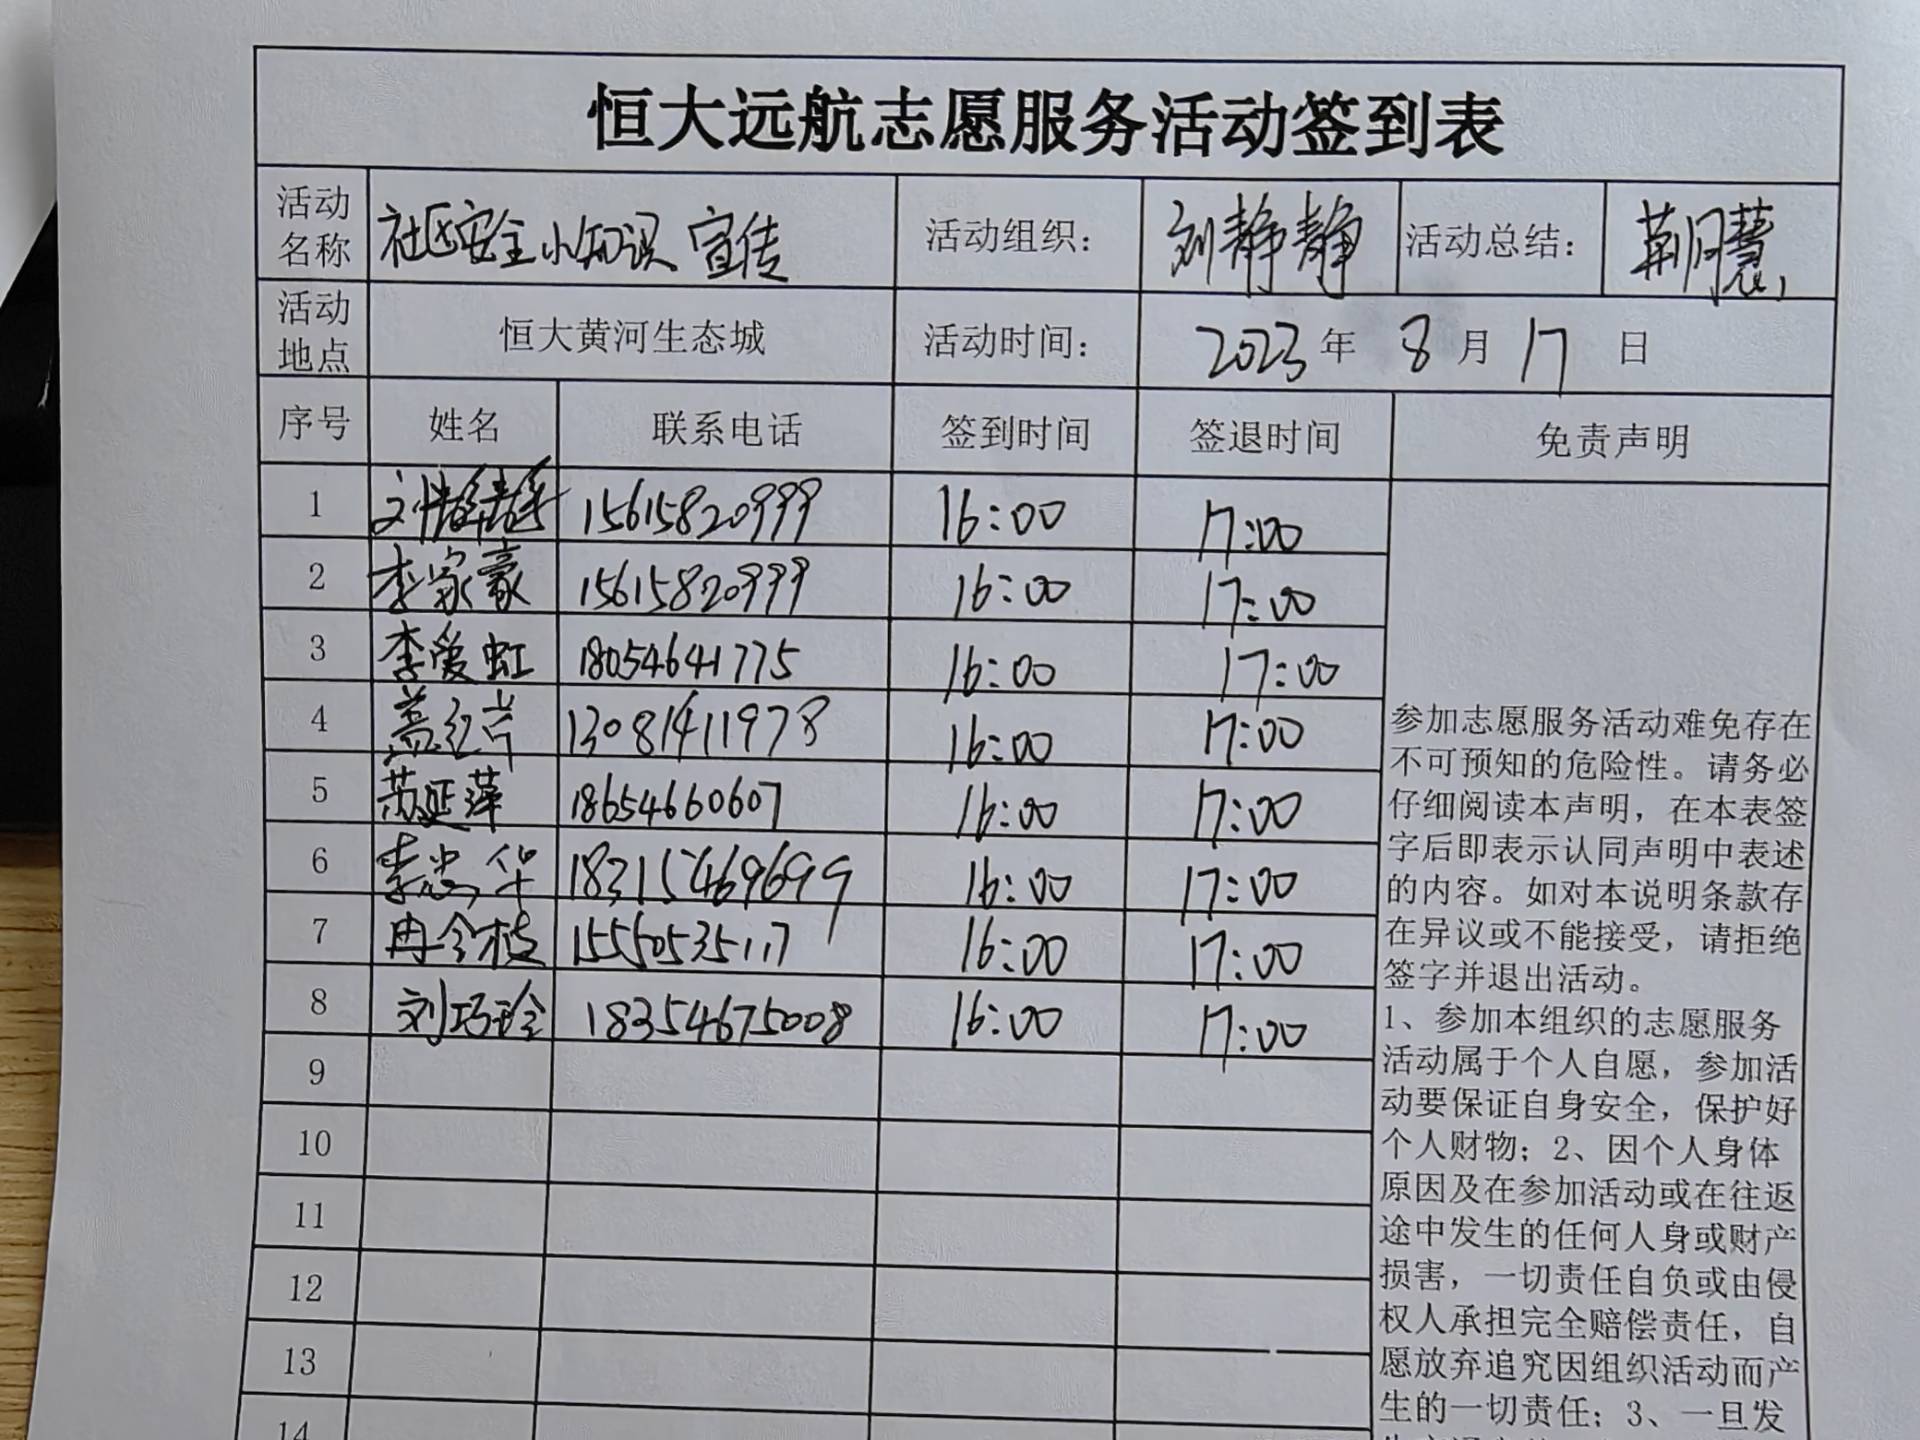 恒大远航志愿服务活动签到表
活动名称 社区安全小知识 宣传 活动组织： 刘静静 活动总结：
活动地点 恒大黄河生态城 活动时间： 2023 年 8 月 17 日
序号 姓名 联系电话 签到时间 签退时间 免责声明
1 刘静静 15615820999 16:00 17:00
2 李家豪 15615820999 16:00 17:00
3 李爱虹 18054641775 16:00 17:00
4 13081411978 16:00 17:00
5 苏延萍 18654660607 16:00 17:00
6 李忠华 18315469699 16:00 17:00
7 冉令枝 15550535117 16:00 17:00
8 刘巧玲 18354675008 16:00 17:00
9
10
11
12
13
14
参加志愿服务活动难免存在
不可预知的危险性。请务必
仔细阅读本声明，在本表签
字后即表示认同声明中表述
的内容。如对本说明条款存
在异议或不能接受，请拒绝
签字并退出活动。
1、参加本组织的志愿服务
活动属于个人自愿，参加活
动要保证自身安全，保护好
个人财物；2、因个人身体
原因及在参加活动或在往返
途中发生的任何人身或财产
损害，一切责任自负或由侵
权人承担完全赔偿责任，自
愿放弃追究因组织活动而产
生的一切责任；3、一旦发